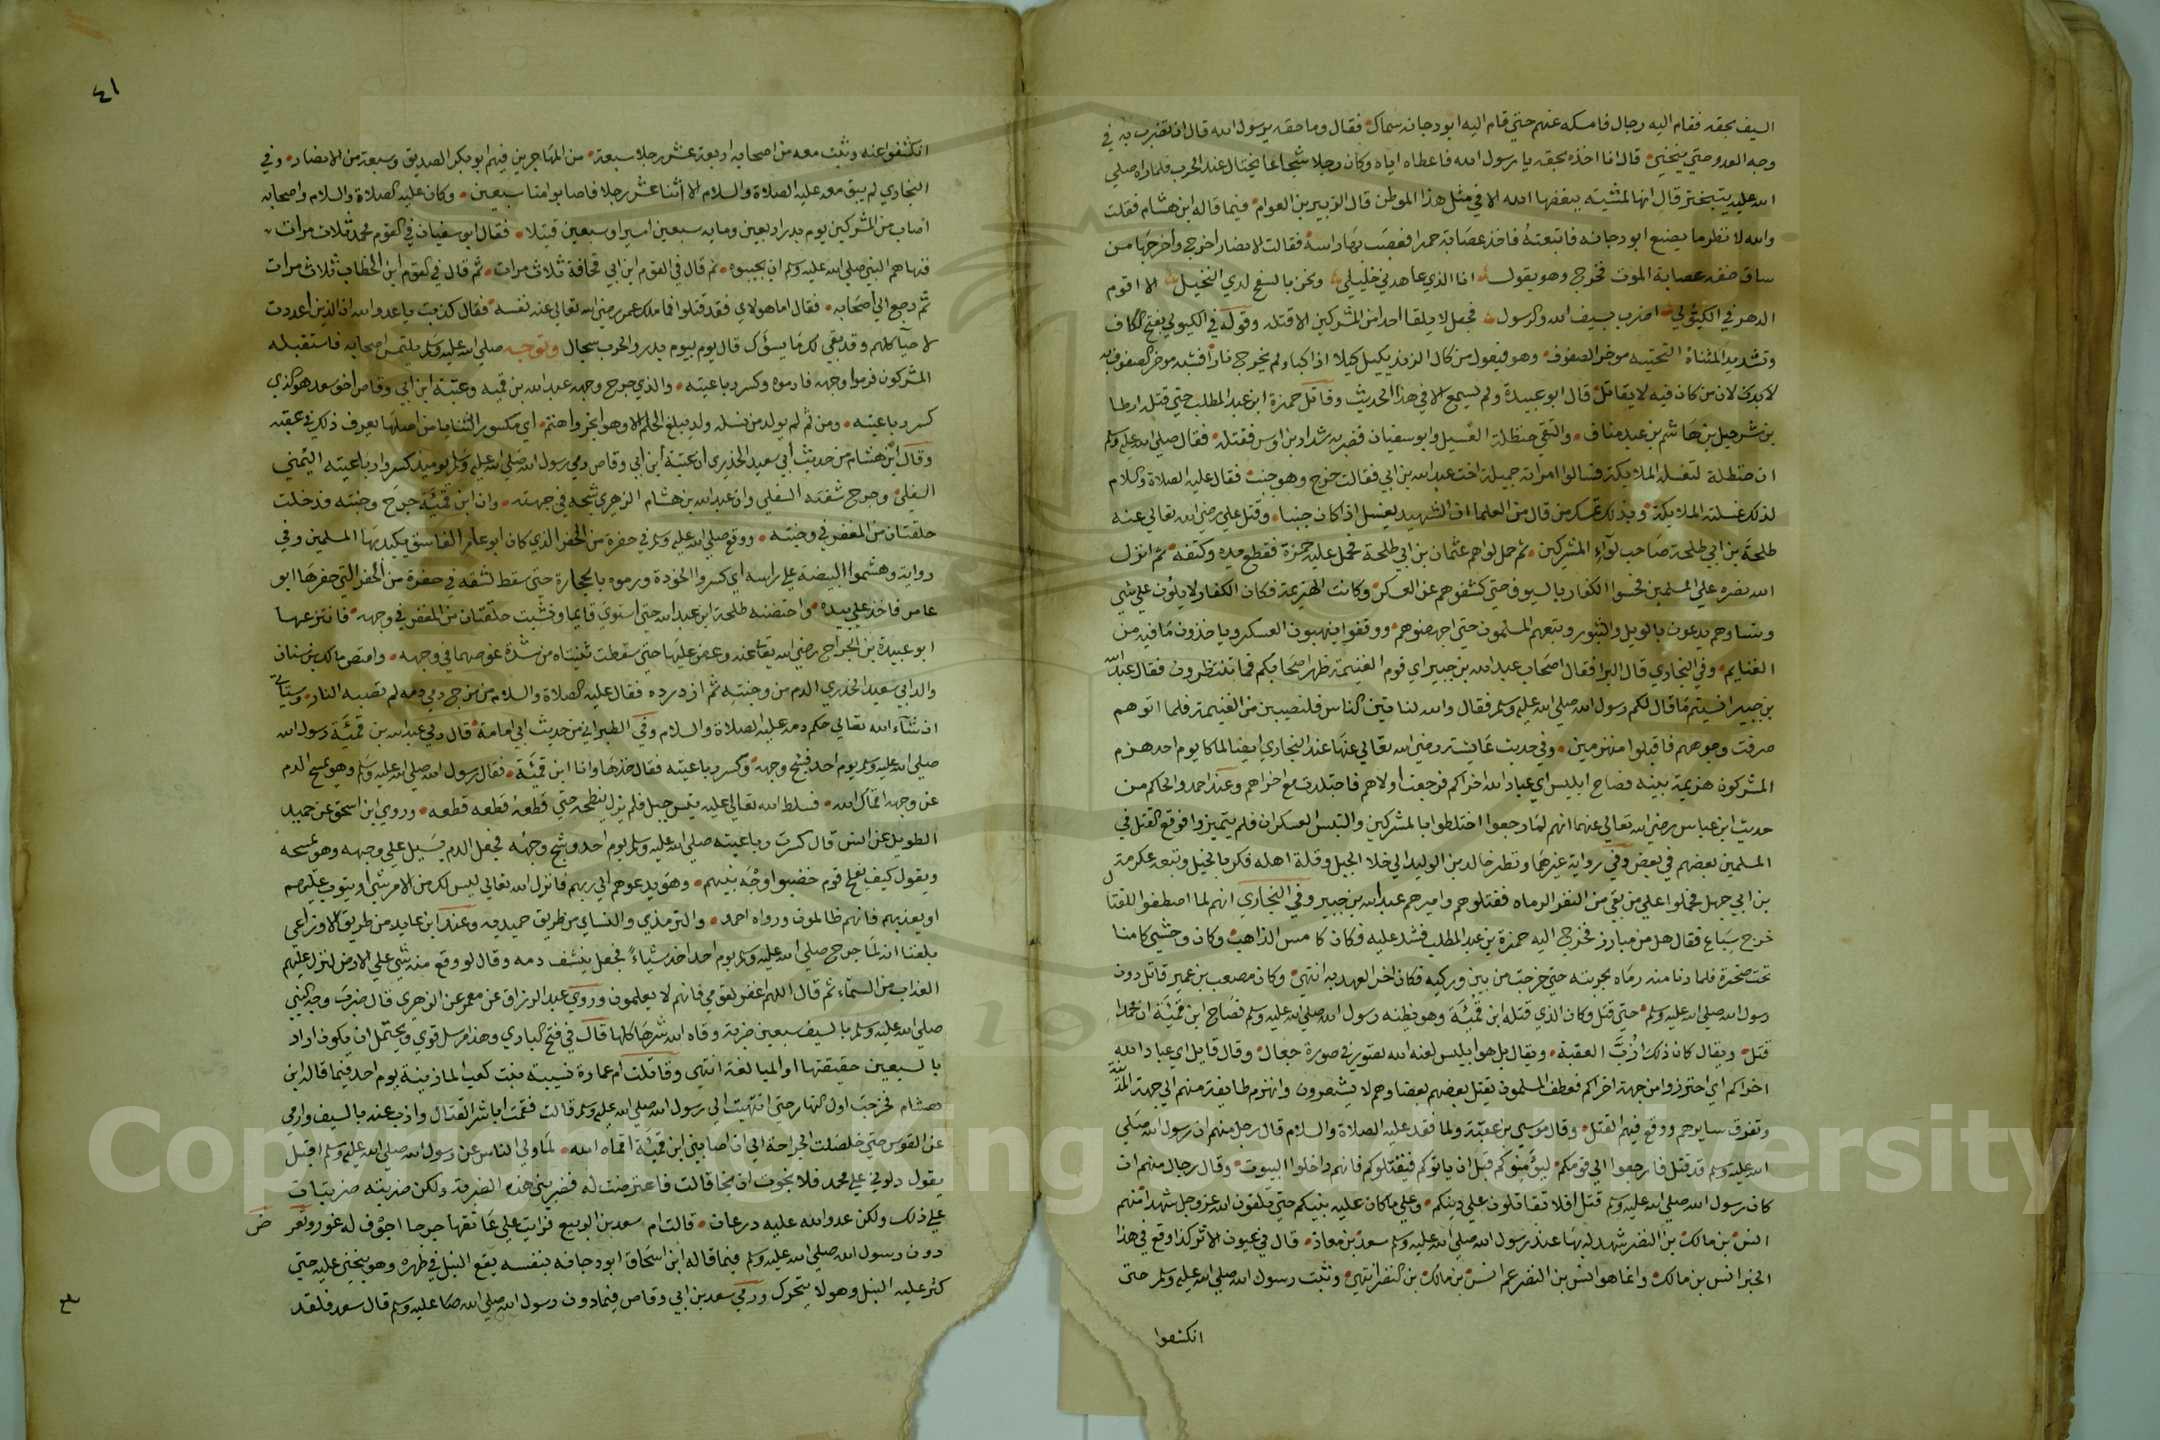 السيف بحقه فقام اليه رجال فامسكه عنهم حتي قام اليه ابو دجانه سماك فقال وما حقه يرسول الله قال ان تضرب به في
وجه العدو حتي ينحني قال انا اخذه بحقه يا رسول الله فاعطاه اياه وكان رجلا شجاعا يختال عند الحرب فلما راه صلي
الله عليه يتبختر قال انها لمشية يبغضها الله الا في مثل هذا الموطن قال الزبير بن العوام فيما قاله ابن هشام فقلت
والله لا نظر ما يصنع ابو دجانه فاتبعته فاخذ عصابة حمرا فعصب بها راسه فقالت الانصار اخرج واخرجها من
ساق خفه عصابة الموت فخرج وهو يقول انا الذي عاهدني خليلي ونحن بالسفح لدي النخيل الا اقوم
الدهر في الكيولي اضرب بسيف الله والرسول فجعل لا يلقا احدا من المشركين الا قتله وقوله في الكيولي بفتح الكاف
وتشديد المثناة التحتيه موخر الصفوف وهو فيعول من كال الزند يكيل كيلا اذا كبا ولم يخرج نارا فشبه موخر الصفوف به
لان من كان فيه لا يقاتل قال ابو عبيدة ولم يسمع الا في هذا الحديث وقاتل حمزة ابن عبد المطلب حتي قتل ارطا
بن شرحبيل بن هاشم بن عبد مناف والتقي حنظلة الغسيل وابو سفيان فضربه شداد بن اوس فقتله فقال صلي الله عليه وسلم
ان حنظلة لتغسله الملايكة فسالوا امراته جميلة اخت عبد الله بن ابي فقالت خرج وهو جنب فقال عليه الصلاة والسلام
لذلك غسلته الملايكة وبذلك تمسك من قال من العلما ان الشهيد يغسل اذا كان جنبا وقتل علي رضي الله تعالي عنه
طلحة بن ابي طلحة صاحب لوآء المشركين ثم حمل لواهم عثمان بن ابي طلحة فحمل عليه حمزة فقطع يده وكتفه ثم انزل
الله نصره علي المسلمين فحسوا الكفار بالسيوف حتي كشفوهم عن العسكر وكانت الهزيمة فكان الكفار لا يلوُن علي شي
ونساوهم يدعون بالويل والثبور وتبعهم المسلمون حتي اجهضوهم ووقفوا ينهبون العسكر وياخذون ما فيه من
الغنايم وفي البخاري قال البرا فقال اصحاب عبد الله بن جبير اي قوم الغنيمة ظهر اصحابكم فما تنتظرون فقال عبد الله
بن جبير انسيتم ما قال لكم رسول الله صلي الله عليه وسلم فقال والله لنا تين الناس فلنصيبن من الغنيمة فلما اتوهم
صرفت وجوههم فاقبلوا منهزمين وفي حديث عائشة رضي الله تعالي عنها عند البخاري ايضا لما كا يوم احد هزم
المشركون هزيمة بينه فصاح ابليس اي عباد الله اخراكم فرجعت اولاهم فاجتلدت مع اخراهم وعند احمد والحاكم من
حديث ابن عباس رضي الله تعالي عنهما انهم لما رجعوا اختلطوا بالمشركين والتبس العسكران فلم يتميزوا فوقع القتل في
المسلمين بعضهم في بعض وفي رواية غيرهما ونظر خالد بن الوليد الي خلا الجبل وقلة اهله فكر بالخيل وتبعه عكرمة
بن ابي جهل فحملوا علي من بقي من النفر الرماه فقتلوهم واميرهم عبد الله بن جبير وفي البخاري انهم لما اصطفوا للقتال
خرج سباع فقال هل من مبارز فخرج اليه حمزة بن عبد المطلب فشد عليه فكان كامس الذاهب وكان وحشي كامنا
تحت صخرة فلما دنا منه رماه بحربته حتي خرجت من بين وركيه فكان اخر العهد به انتهي وكان مصعب بن عمير قاتل دون
رسول الله صلي الله عليه وسلم حتي قتل وكان الذي قتله ابن قميئة وهو يظنه رسول الله صلي الله عليه وسلم فصاح ابن قميئة ان محمدا
قتل ويقال كان ذلك ازبّ العقبة ويقال بل هو ابليس لعنه الله تصور في صورة جعال وقال قايل اي عباد الله
اخراكم اي احترزوا من جهة اخراكم فعطف المسلمون يقتل بعضهم بعضا وهم لا يشعرون وانهزم طايفة منهم الي جهة المدينة
وتفرق سايرهم ووقع فيهم القتل وقال موسي بن عقبة ولما فقد عليه الصلاة والسلام قال رجل منهم ان رسول الله صلي
الله عليه وسلم قد قتل فارجعوا الي قومكم ليؤمنوكم قبل ان ياتوكم فيقتلوكم فانهم داخلوا البيوت وقال رجال منهم ان
كان رسول الله صلي الله عليه وسلم قتل افلا تقاتلون علي دينكم وعلي ما كان عليه نبيكم حتي تلقون الله عز وجل شهدا منهم
انس بن مالك بن النضر شهد له بها عند رسول الله صلي الله عليه وسلم سعد بن معاذ قال في عيون الاثر كذا وقع في هذا
الخبر انس بن مالك وانما هو انس بن النضر عم انس بن مالك بن النضر انتهي وثبت رسول الله صلي الله عليه وسلم حتي
انكشفوا
٤١
انكشفوا عنه وثبت معه من اصحابه اربعة عشر رجلا سبعة من المهاجرين فيهم ابو بكر الصديق وسبعة من الانصار وفي
البخاري لم يبق معه عليه الصلاة والسلام الا اثنا عشر رجلا فاصابوا منا سبعين وكان عليه الصلاة والسلام واصحابه
اصاب من المشركين يوم بدر اربعين ومايه سبعين اسيرا وسبعين قتيلا فقال ابو سفيان في القوم محمد ثلاث مرات
فنهاهم النبي صلي الله عليه وسلم ان يجيبوه ثم قال في القوم ابن ابي قحافة ثلاث مرات ثم قال في القوم ابن الخطاب ثلاث مرات
ثم رجع الي اصحابه فقال اما هولاي فقد قتلوا فما ملك عمر رضي الله تعالي عنه نفسه فقال كذبت يا عدو الله ان الذين اعددت
لاحيآ كلهم وقد بقي لك ما يسؤك قال يوم بيوم بدر والحرب سجال وتوجه صلي الله عليه وسلم يلتمس اصحابه فاستقبله
المشركون فرموا وجهه فادموه وكسر رباعيته والذي جرح وجهه عبد الله بن قميه وعتبة ابن ابي وقاص اخو سعد هو الذي
كسر رباعيته ومن ثم لم يولد من نسله ولد فيبلغ الحلم الا وهو ابخر واهتم اي مكسور الثنايا من اصلها يعرف ذلك في عقبه
وقال ابن هشام من حديث ابي سعيد الخدري ان عتبة ابن ابي وقاص رمي رسول الله صلي الله عليه وسلم يوميذ كسر رباعيته اليمني
السفلي وجرح شفته السفلي وان عبد الله بن هشام الزهري شجه في جبهته وان ابن قميئة جرح وجنته فدخلت
حلقتان من المغفر في وجنته ووقع صلي الله عليه وسلم في حفرة من الحفر الذي كان ابو عامر الفاسق يكيد بها المسلمين وفي
رواية وهشموا البيضة علي راسه اي كسروا الخوذة ورموه بالحجارة حتي سقط لشقه في حفرة من الحفر التي حفرها ابو
عامر فاخذ علي بيده واحتضنه طلحة ابن عبد الله حتي استوي قايما ونشبت حلقتان من المغفر في وجهه فانتزعهما
ابو عبيدة بن الجراح رضي الله تعالي عنه وعض عليها حتي سقطت ثنيتاه من شدة غوصهما في وجهه وامتص مالك بن سنان
والد ابي سعيد الخدري الدم من وجنته ثم ازدرده فقال عليه الصلاة والسلام من مزج دمي دمه لم تصبه النار وسياتي
ان شآء الله تعالي حكم دمه عليه الصلاة والسلام وفي الطبراني من حديث ابي امامة قال رمي عبد الله بن قميئة رسول الله
صلي الله عليه وسلم يوم احد فشج وجهه وكسر رباعيته فقال خذها وانا ابن قميئة فقال رسول الله صلي الله عليه وسلم وهو يمسح الدم
عن وجهه اقماك الله فسلط الله تعالي عليه تيس جبل فلم يزل ينطحه حتي قطعه قطعه قطعه وروي ابن اسحق عن حميد
الطويل عن انس قال كسرت رباعيته صلي الله عليه وسلم يوم احد وشج وجهه فجعل الدم يسيل علي وجهه وهو يمسحه
ويقول كيف يفلح قوم خضبوا وجه نبيهم وهو يدعوهم الي ربهم فانزل الله تعالي ليس لك من الامر شي او يتوب عليهم
او يعذبهم فانهم ظالمون ورواه احمد والترمذي والنساي من طريق حميد به وعند ابن عايد من طريق الاوزاعي
بلغنا انه لما جرح صلي الله عليه وسلم يوم احد اخذ شياءً فجعل ينشف دمه وقال لو وقع منه شي علي الارض لنزل عليهم
العذاب من السماء ثم قال اللهم اغفر لقومي فانهم لا يعلمون وروي عبد الرزاق عن معمر عن الزهري قال ضرب وجه النبي
صلي الله عليه وسلم بالسيف سبعين ضربة وقاه الله شرها كلها قال في فتح الباري وهذا مرسل قوي ويحتمل ان يكون اراد
بالسبعين حقيقتها او المبالغة انتهي وقاتلت ام عمارة نسيبة بنت كعب المازنية يوم احد فيما قاله ابن
هشام فخرجت اول النهار حتي انتهيت الي رسول الله صلي الله عليه وسلم قالت فقمت اباشر القتال واذب عنه بالسيف وارمي
عن القوس حتي خلصت الجراحة الي ان اصابني ابن قميئة اقماه الله لما ولي الناس عن رسول الله صلي الله عليه وسلم اقبل
يقول دلوني علي محمد فلا نجوت ان نجا قالت فاعترضت له فضربني هذه الضربة ولكن ضربته ضربتان
علي ذلك ولكن عدو الله عليه درعان قالت ام سعد بن الربيع فرايت علي عاتقها جرحا اجوف له غور وتعرض
دون رسول الله صلي الله عليه وسلم فيما قاله ابن اسحاق ابو دجانه بنفسه يقع النبل في ظهره وهو ينحني عليه حتي
كثر عليه النبل وهو لا يتحرك ورمي سعد بن ابي وقاص فيما دون رسول الله صلي الله عليه وسلم قال سعد فلقد
Copyright © King Saud University